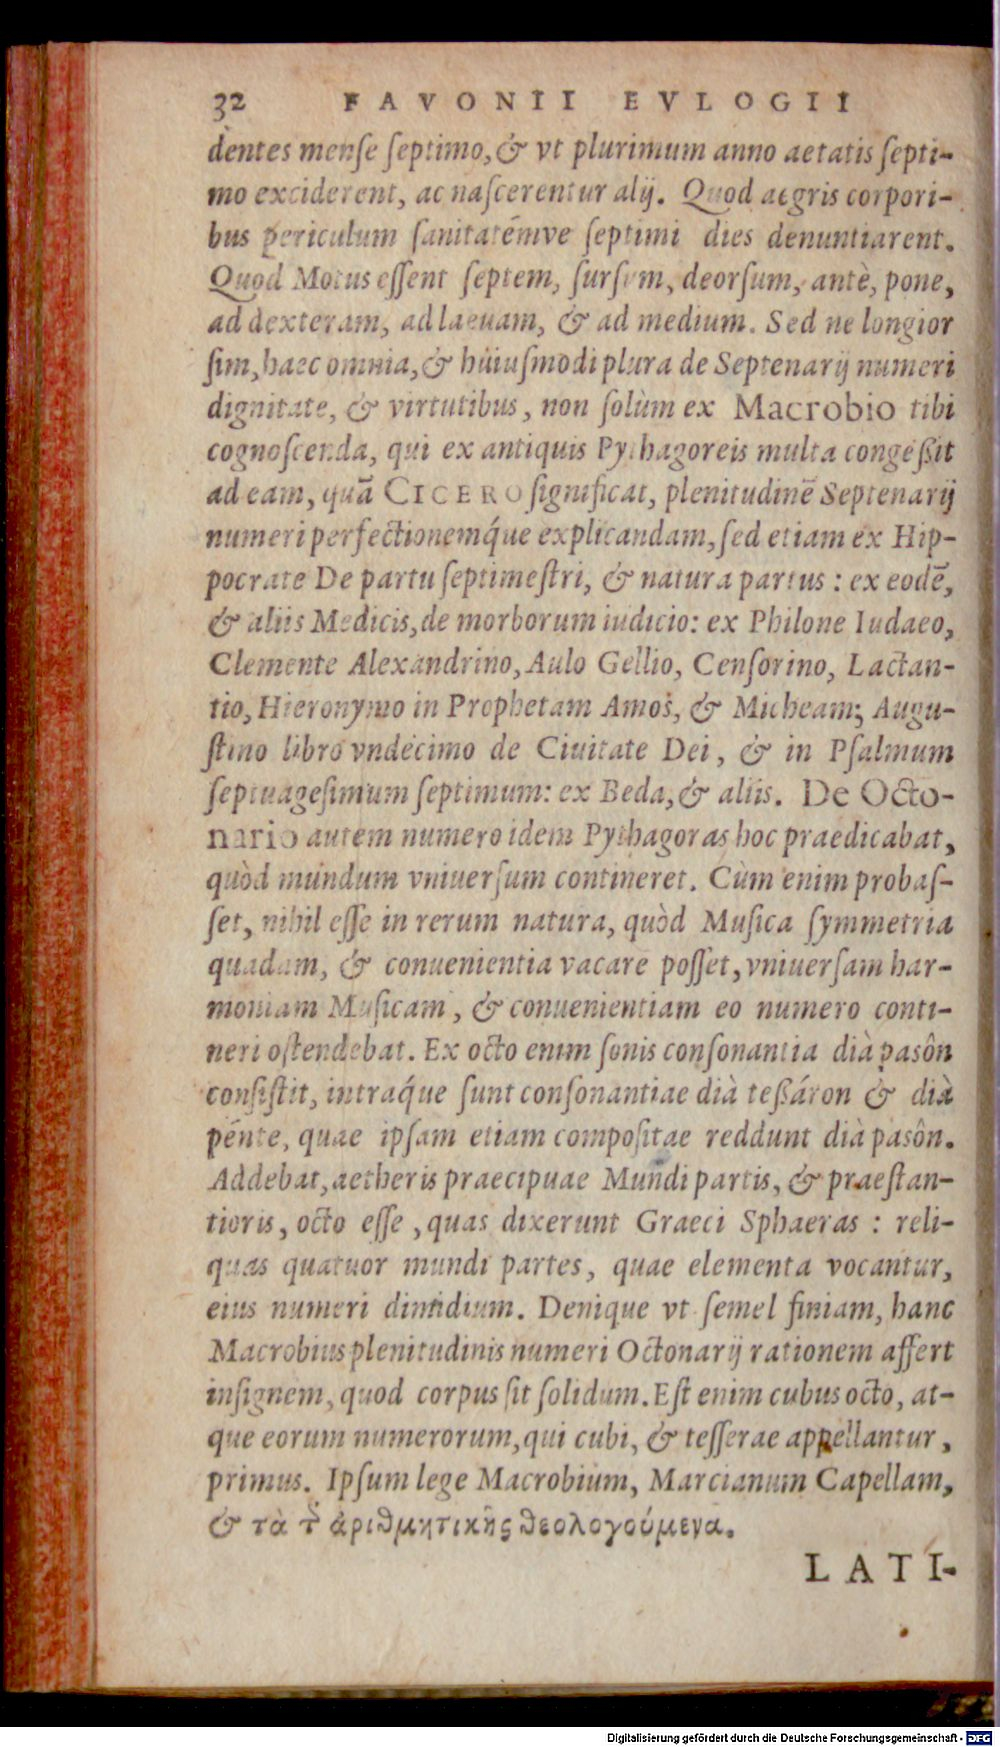 32 FAVONII EVLOGII
dentes mense septimo, & vt plurimum anno aetatis septi-
mo exciderent, ac nascerentur alij. Quod aegris corpori-
bus periculum sanitatémve septimi dies denuntiarent.
Quod Motus essent septem, sursum, deorsum, antè, pone,
ad dexteram, ad laeuam, & ad medium. Sed ne longior
sim, haec omnia, & húiusmodi plura de Septenarij numeri
dignitate, & virtutibus, non solùm ex Macrobio tibi
cognoscenda, qui ex antiquis Pythagoreis multa congeßit
ad eam, quā CICERO significat, plenitudinē Septenarij
numeri perfectionemq́ue explicandam, sed etiam ex Hip-
pocrate De partu septimestri, & natura partus: ex eodē,
& aliis Medicis, de morborum iudicio: ex Philone Iudaeo,
Clemente Alexandrino, Aulo Gellio, Censorino, Lactan-
tio, Hieronymo in Prophetam Amos, & Micheam; Augu-
stino libro vndécimo de Ciuitate Dei, & in Psalmum
septuagesimum septimum: ex Beda, & aliis. De Octo-
nario autem numero idem Pythagoras hoc praedicabat,
quòd mundum vniuersum contineret. Cùm enim probas-
set, nihil esse in rerum natura, quòd Musica symmetria
quadam, & conuenientia vacare posset, vniuersam har-
moniam Musicam, & conuenientiam eo numero conti-
neri ostendebat. Ex octo enim sonis consonantia dià pasôn
consistit, intraq́ue sunt consonantiae dià teßáron & dià
pénte, quae ipsam etiam compositae reddunt dià pasôn.
Addebat, aetheris praecipuae Mundi partis, & praestan-
tioris, octo esse, quas dixerunt Graeci Sphaeras: reli-
quas quatuor mundi partes, quae elementa vocantur,
eius numeri dimidium. Denique vt semel finiam, hanc
Macrobius plenitudinis numeri Octonarij rationem affert
insignem, quod corpus sit solidum. Est enim cubus octo, at-
que eorum numerorum, qui cubi, & tesserae appellantur,
primus. Ipsum lege Macrobium, Marcianum Capellam,
& τὰ τ῀ ἀριθμητικῆς θεολογούμενα.
LATI-
Digitalisierung gefördert durch die Deutsche Forschungsgemeinschaft - DFG